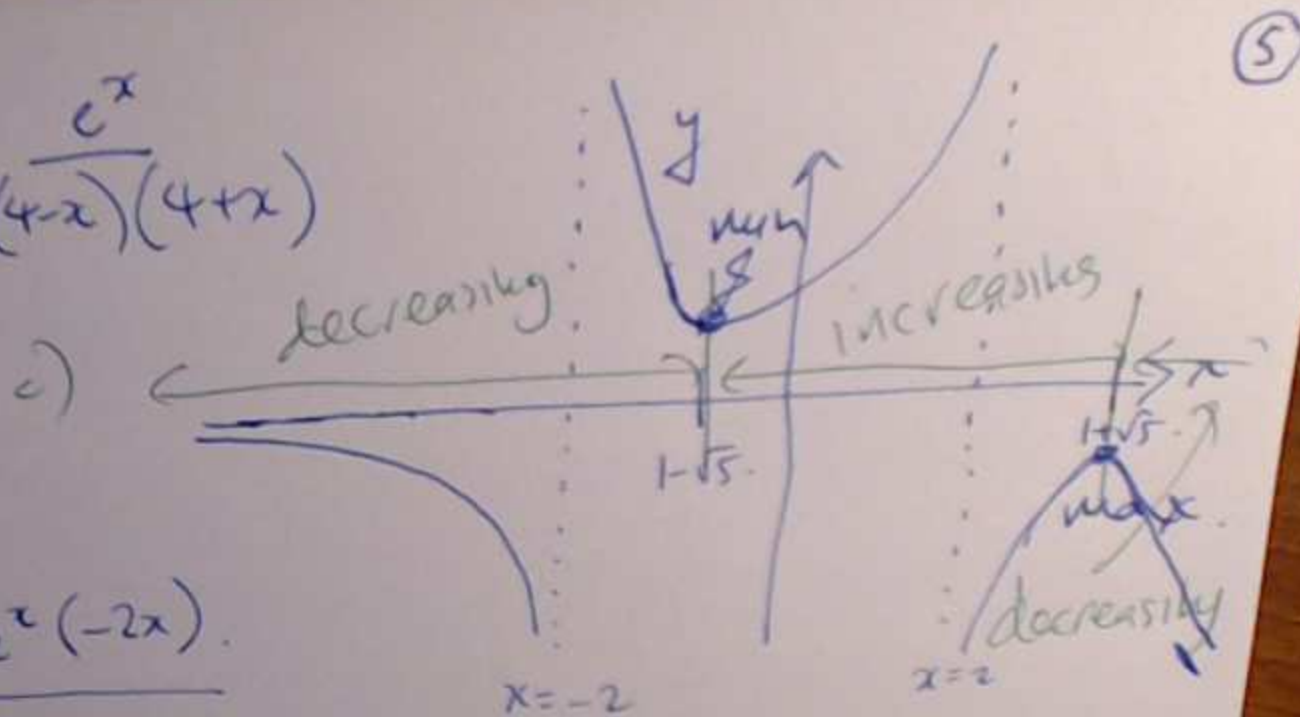 5
e^x
(4-x)(4+x)
y
min
decreasing
increasing
c)
x
1-√5
1+√5
max
x (-2x).
decreasing
x=-2
x=2